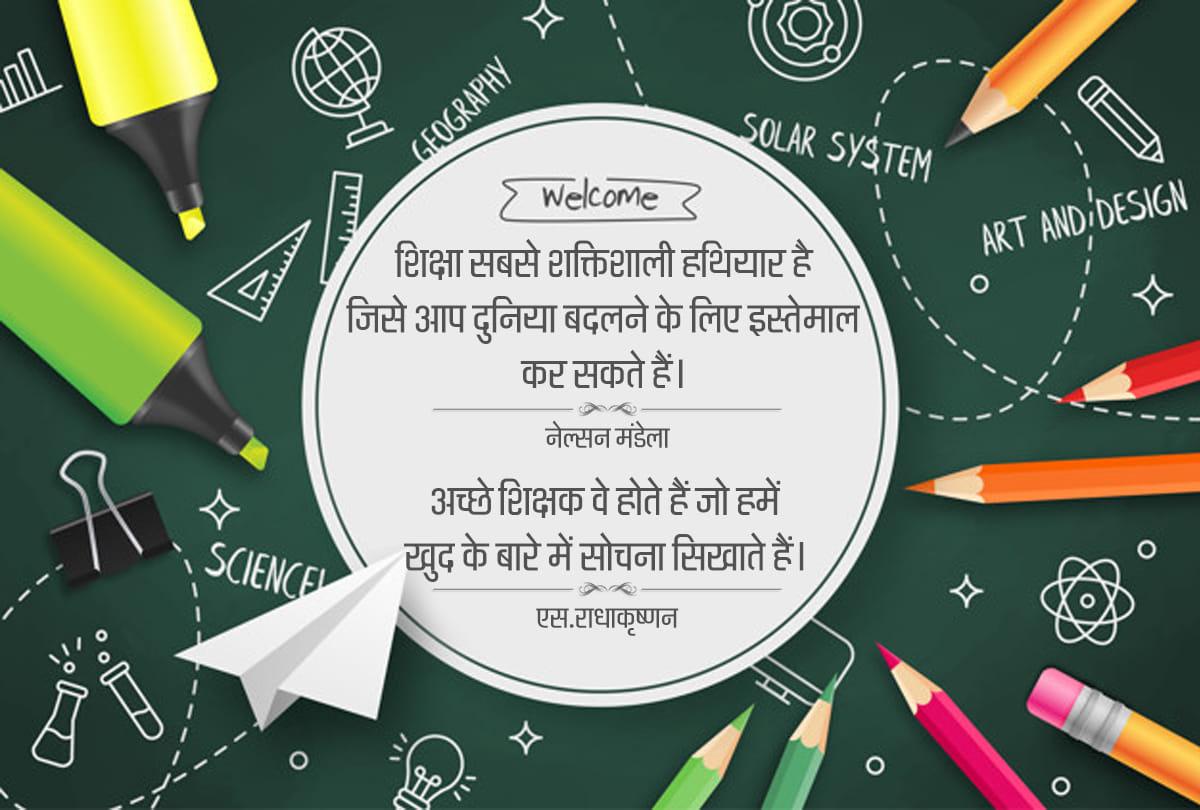 GEOGRAPHY
SOLAR SYSTEM
ART AND DESIGN
Welcome
शिक्षा सबसे शक्तिशाली हथियार है
जिसे आप दुनिया बदलने के लिए इस्तेमाल
कर सकते हैं।
नेल्सन मंडेला
अच्छे शिक्षक वे होते हैं जो हमें
खुद के बारे में सोचना सिखाते हैं।
एस.राधाकृष्णन
SCIENCE!